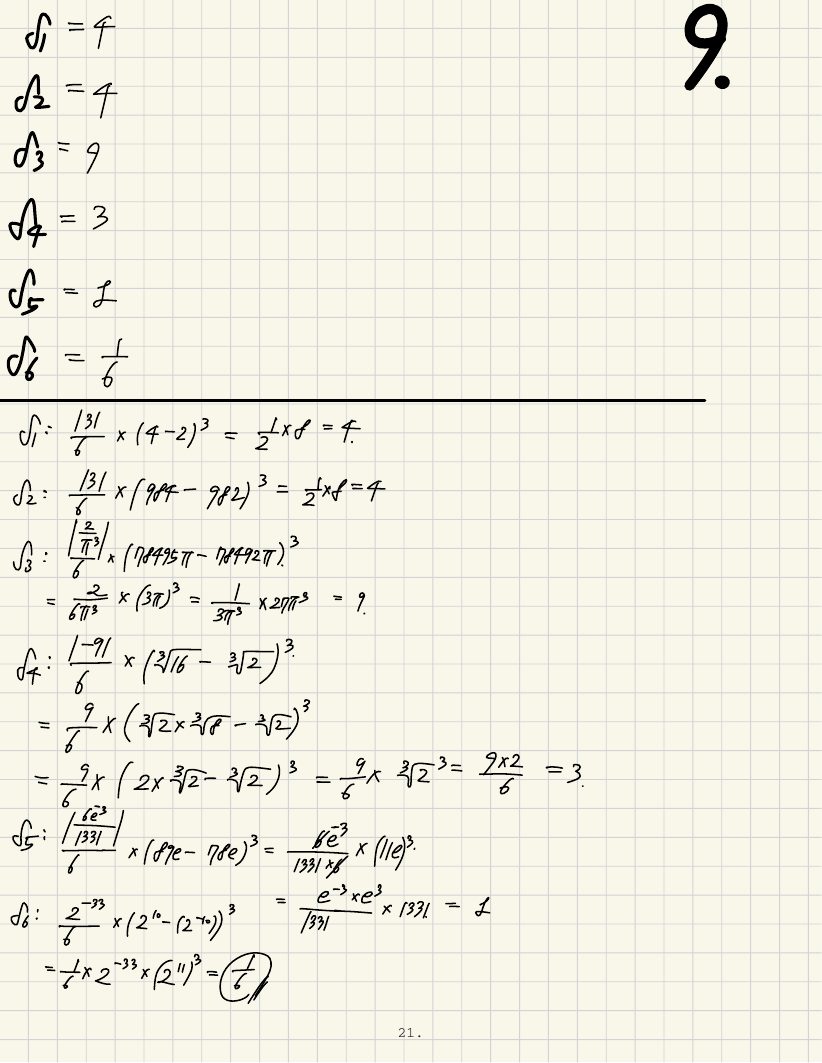 9.
S₁ = 4
S₂ = 4
S₃ = 9
S₄ = 3
S₅ = 1
S₆ = 1/6
S₁: |3|/6 × (4-2)³ = 1/2 × 8 = 4.
S₂: |3|/6 × (984 - 982)³ = 1/2 × 8 = 4
S₃: |2/π³|/6 × (78495π - 78492π)³
= 2/6π³ × (3π)³ = 1/3π³ × 27π³ = 9.
S₄: |-9|/6 × (∛16 - ∛2)³
= 9/6 × (∛2 × ∛8 - ∛2)³
= 9/6 × (2 × ∛2 - ∛2)³ = 9/6 × ∛2³ = 9×2/6 = 3.
S₅: |6e⁻³/1331|/6 × (89e - 78e)³ = 6e⁻³/1331×6 × (11e)³.
= e⁻³×e³/1331 × 1331 = 1
S₆: 2⁻³³/6 × (2¹⁰-(2⁻¹⁰))³
= 1/6 × 2⁻³³ × (2¹¹)³ = 1/6
21.